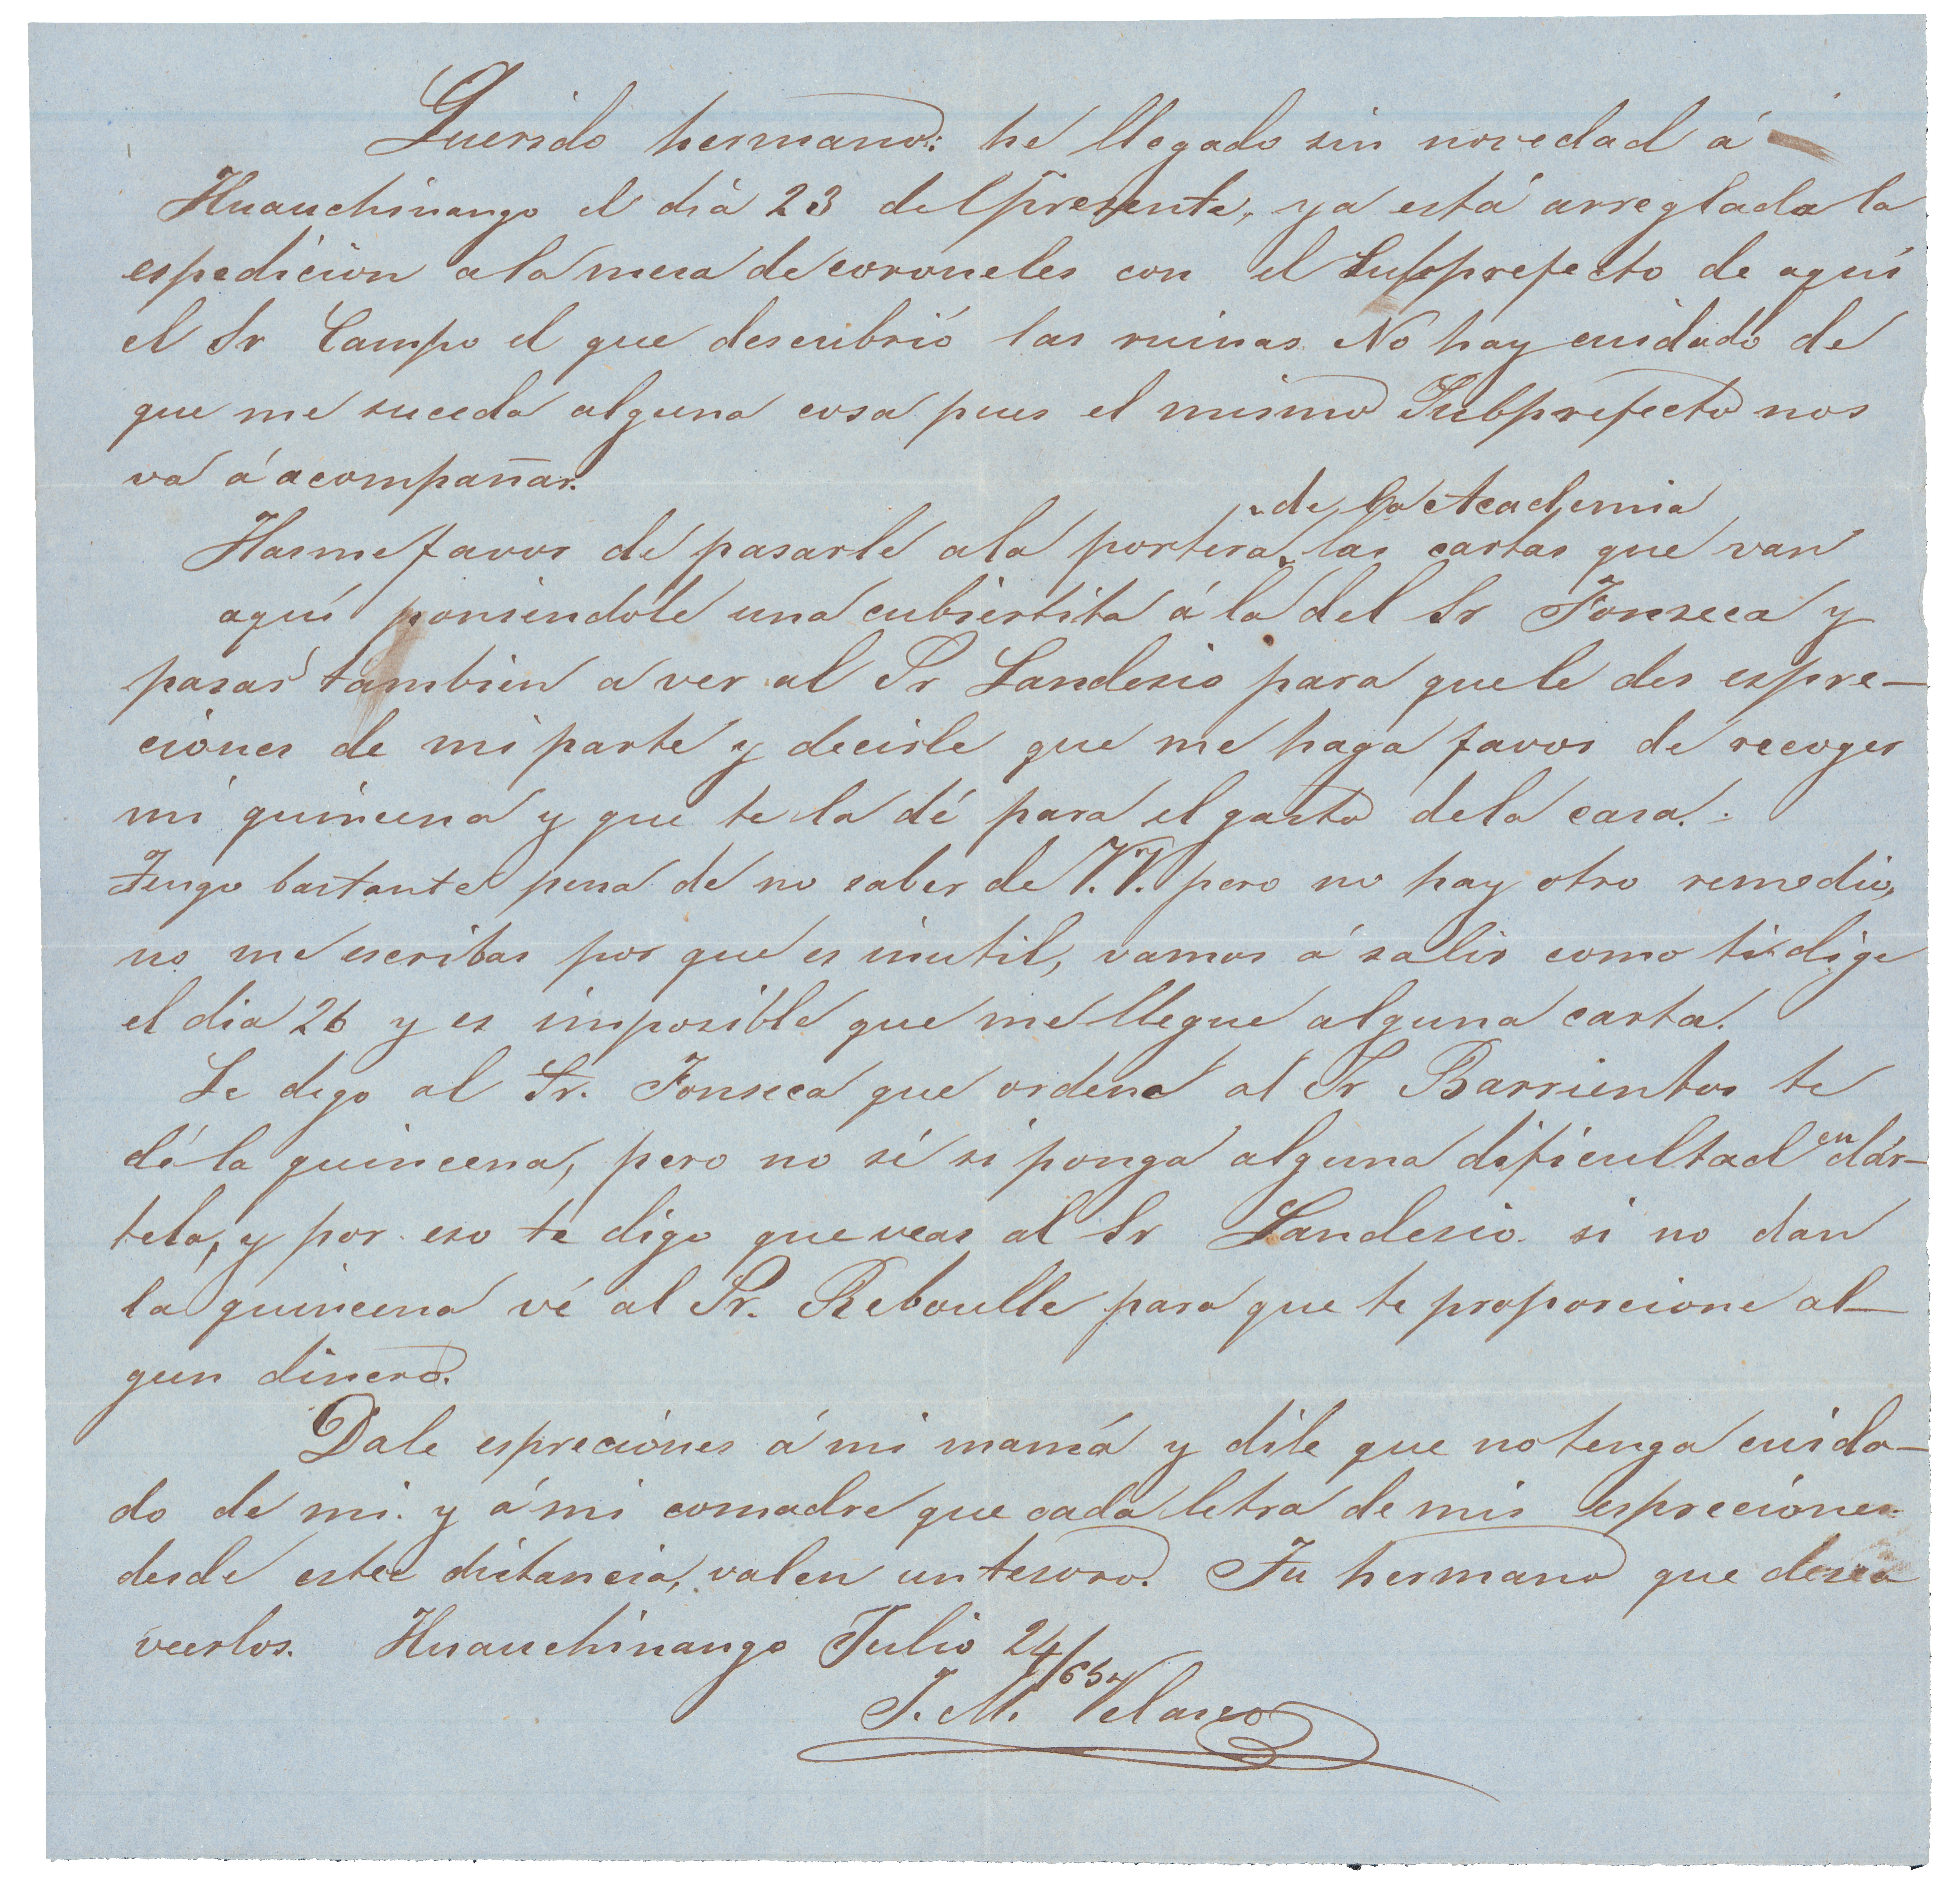 Querido hermano: he llegado sin novedad á
Huauchinango el dia 23 del presente, ya está arreglada la
espedicion a la mesa de coroneles con el Subprefecto de aquí
el Sr Campo el que descubrió las ruinas. No hay cuidado de
que me suceda alguna cosa pues el mismo Subprefecto nos
va á acompañar.
de la Academia
Hasme favor de pasarle a la portera las cartas que van
aquí poniendole una cubiertita á la del Sr Fonseca y
pasas tambien a ver al Sr Landesio para que le des espre-
ciones de mi parte y decirle que me haga favor de recoger
mi quincena y que te la dé para el gasto de la casa.
Tengo bastante pena de no saber de V.V. pero no hay otro remedio,
no me escribas por que es inutil, vamos á salir como te dige
el dia 26 y es imposible que me llegue alguna carta.
Le digo al Sr. Fonseca que ordene al Sr Barrientos te
dé la quincena, pero no sé si ponga alguna dificultad en dár-
tela, y por eso te digo que veas al Sr Landesio. si no dan
la quincena vé al Sr. Reboulle para que te proporcione al-
gun dinero.
Dale espreciones á mi mamá y dile que no tenga cuida-
do de mi. y á mi comadre que cada letra de mis espreciones
desde esta distancia, valen un tesoro. Tu hermano que desea
veerlos. Huauchinango Julio 24/65
J. M. Velasco